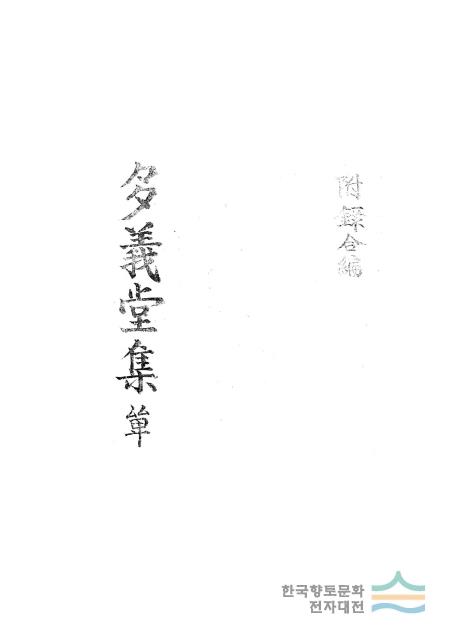 附錄合編
多義堂集 單
한국향토문화
전자대전